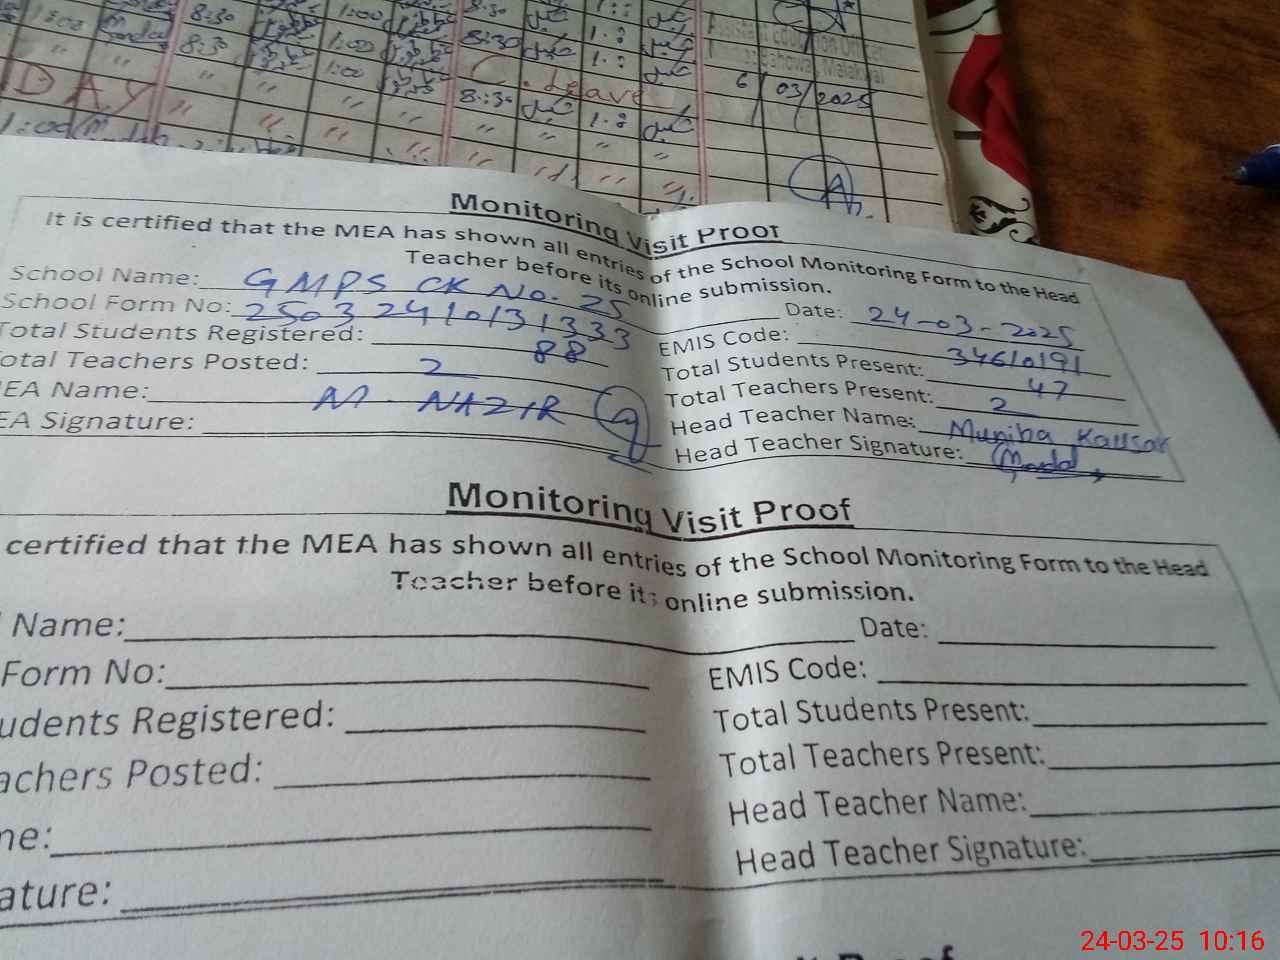 1:00 8:30 1:00 8:30 1:?
" 8:30 1:00 8:30 1.?
" " 1:00 C. Leave 1.?
DAY " " 8:30 1.?
1:00
Assistant Education Officer
Malakwal
6/03/2025
Monitoring Visit Proof
It is certified that the MEA has shown all entries of the School Monitoring Form to the Head
Teacher before its online submission.
School Name: GMPS CK No. 25 Date: 24-03-2025
School Form No: 2503 2410131333 EMIS Code: 34610191
Total Students Registered: 88 Total Students Present: 47
otal Teachers Posted: 2 Total Teachers Present: 2
EA Name: M. NAZIR Head Teacher Name: Muniba Kausar
EA Signature: Head Teacher Signature:
Monitoring Visit Proof
certified that the MEA has shown all entries of the School Monitoring Form to the Head
Teacher before its online submission.
Name: Date:
Form No: EMIS Code:
udents Registered: Total Students Present:
achers Posted: Total Teachers Present:
me: Head Teacher Name:
ature: Head Teacher Signature:
Proof
24-03-25 10:16